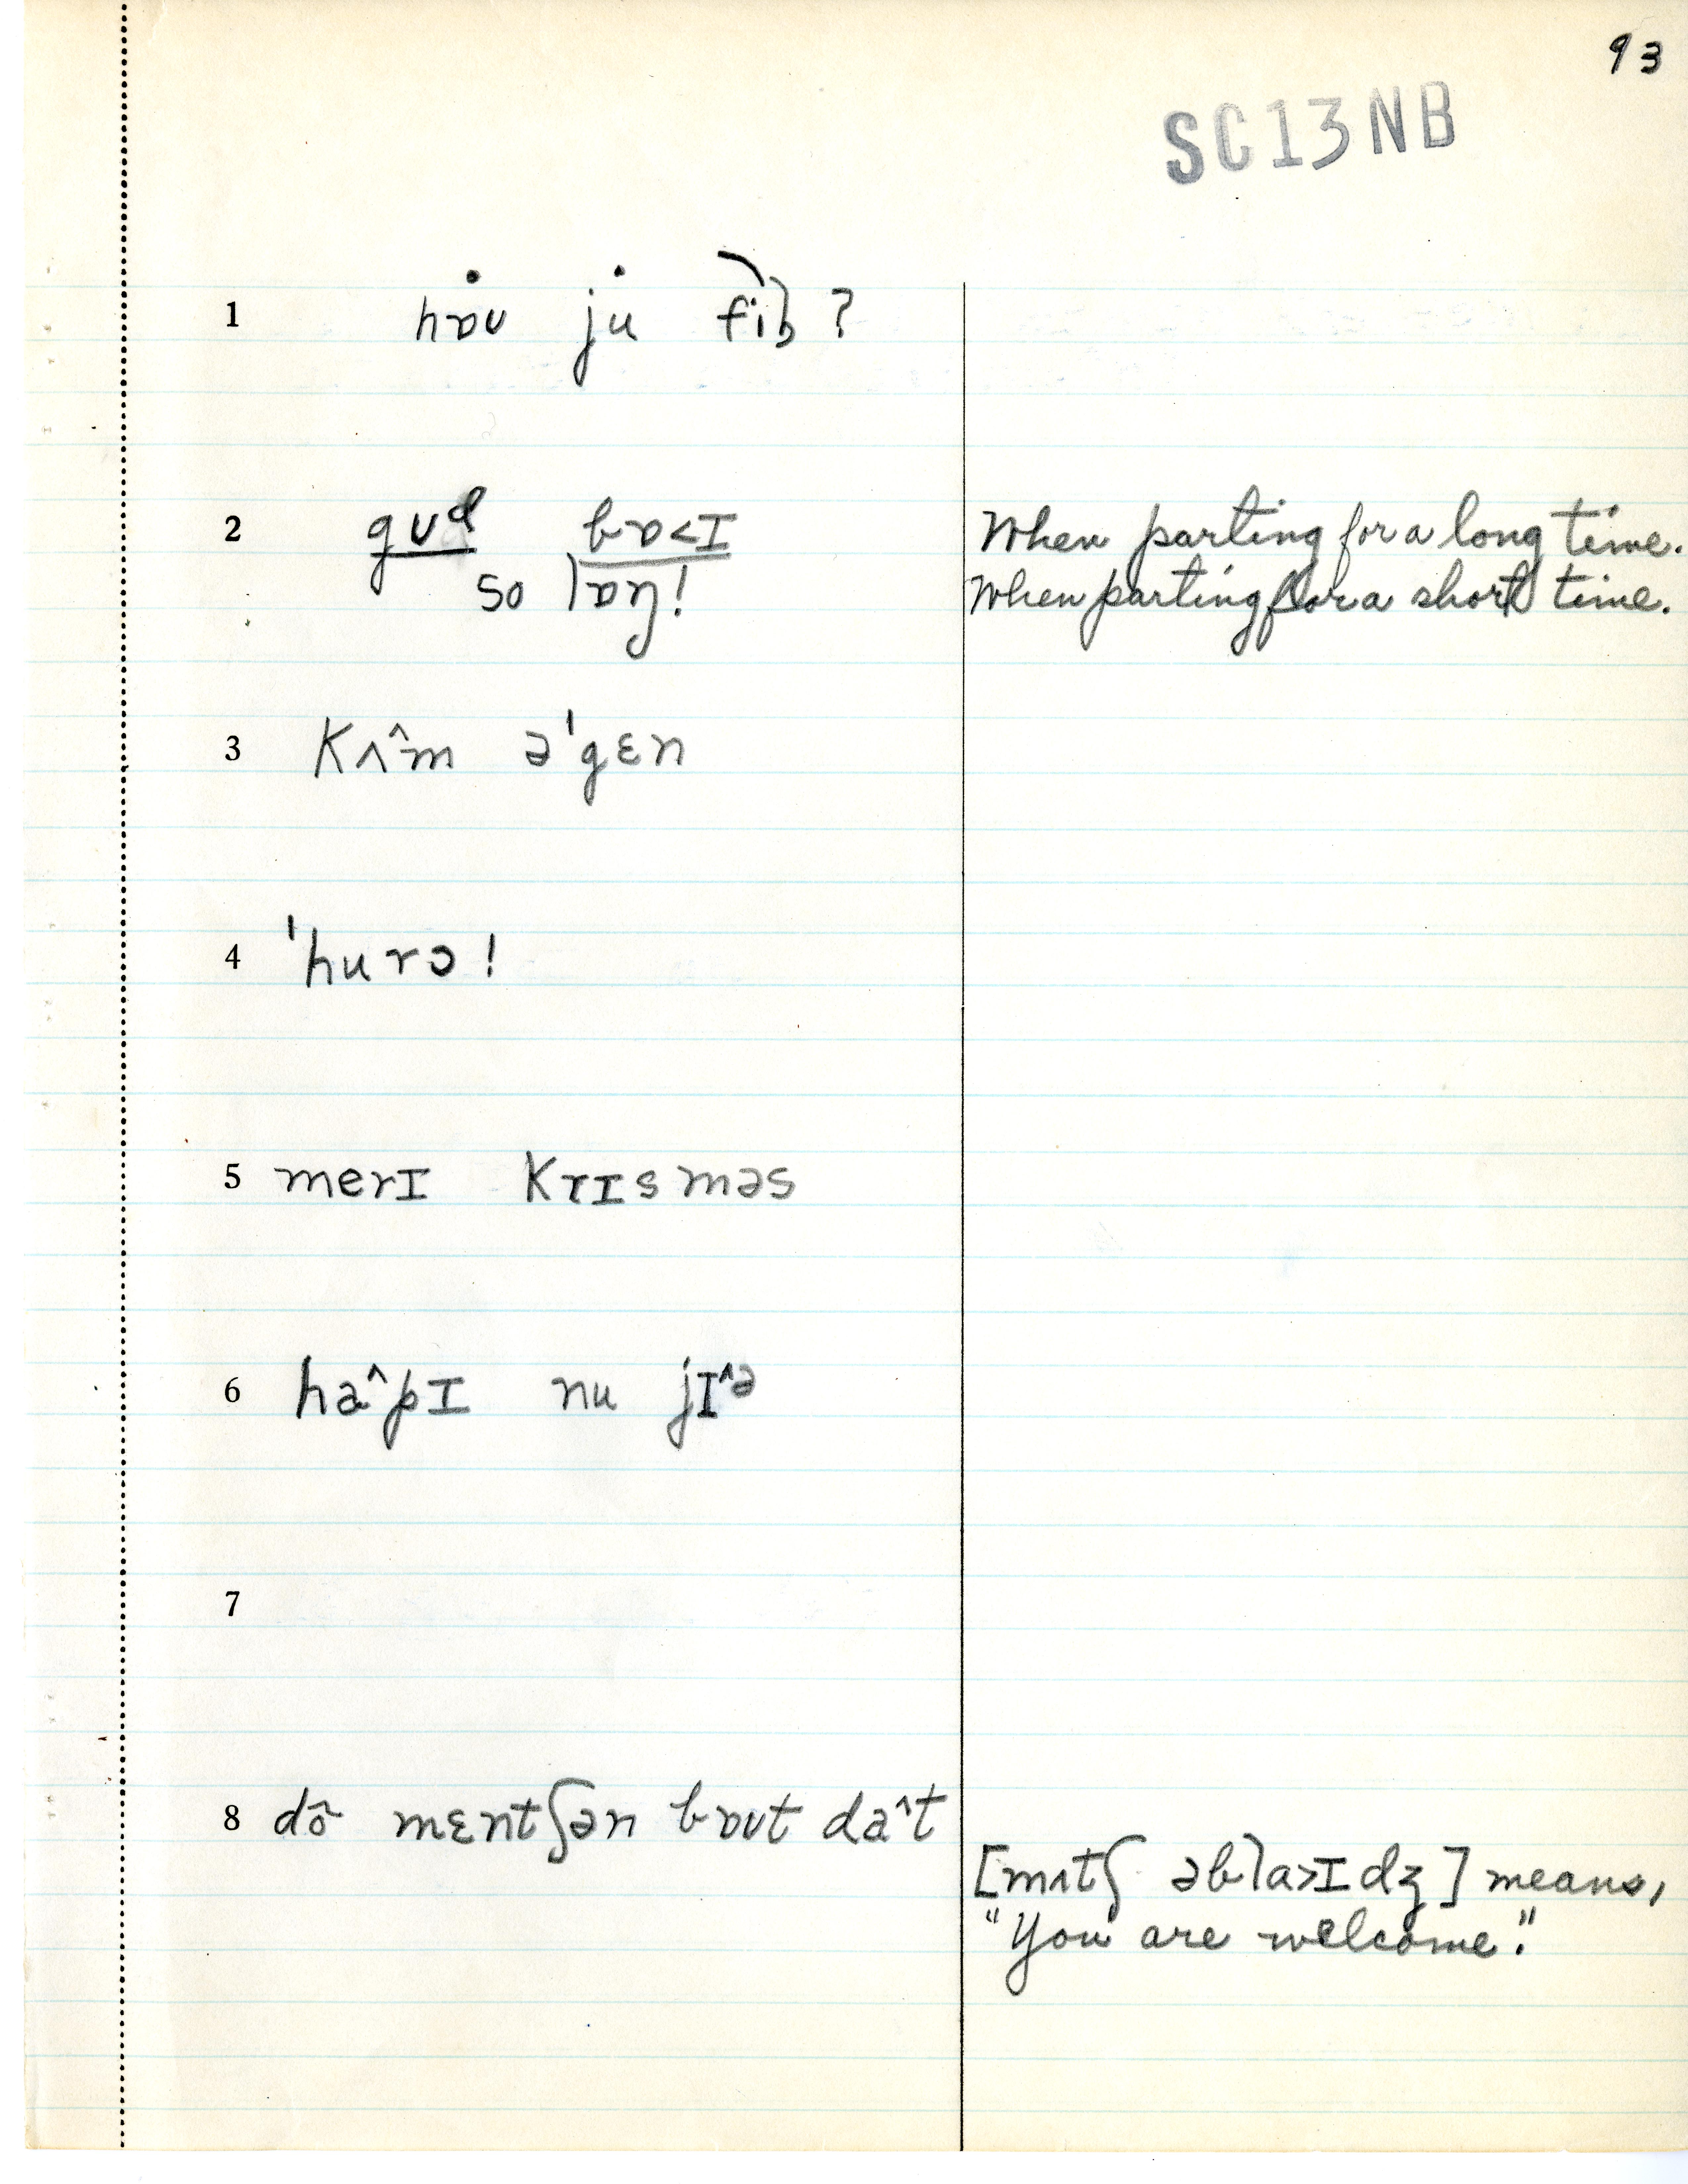 93
SC13NB
1 hɒu ju fiɫ ?
2 gʊd bɒ<ɪ When parting for a long time.
so lɒŋ! When parting for a short time.
3 kʌ^m ə'gɛn
4 'hurɔ!
5 merɪ krɪsməs
6 ha^pɪ nu jɪ^ə
7
8 dõ mɛntʃən bɒʊt da^t
[mʌtʃ əbla>ɪdʒ] means,
"You are welcome."